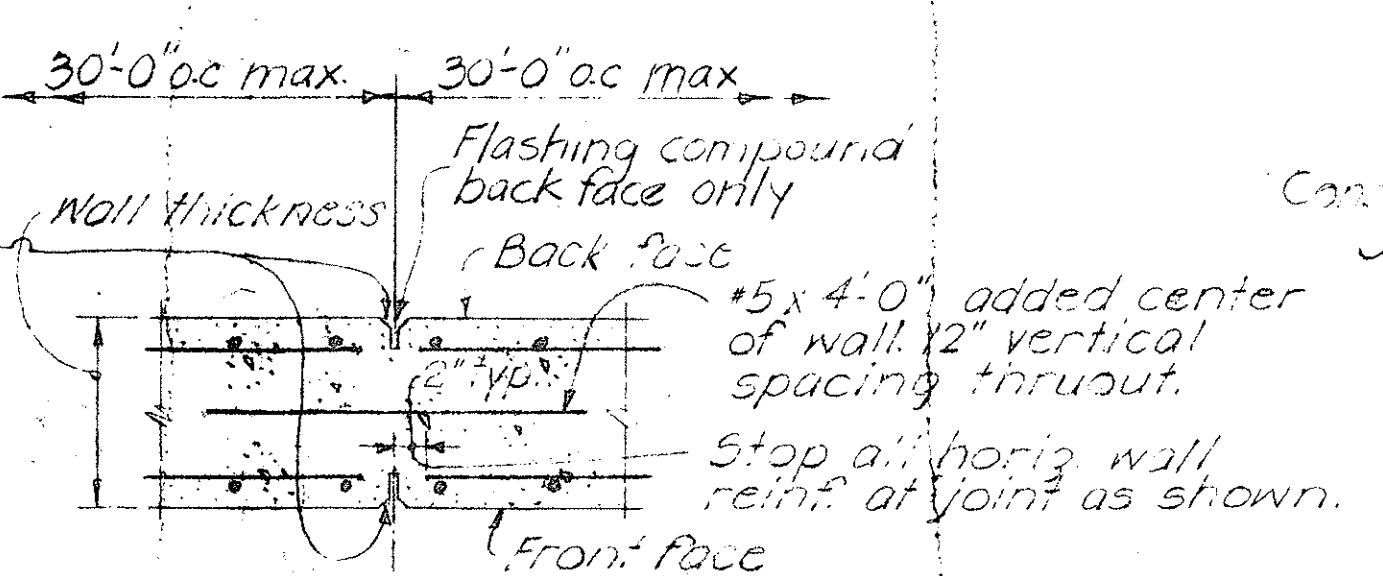 30'-0" o.c max.
30'-0" o.c max
Flashing compound
back face only
Wall thickness
Back face
#5 x 4'-0" added center
of wall. 12" vertical
spacing thruout.
2" typ.
Stop all horiz. wall
reinf. at joint as shown.
Front face